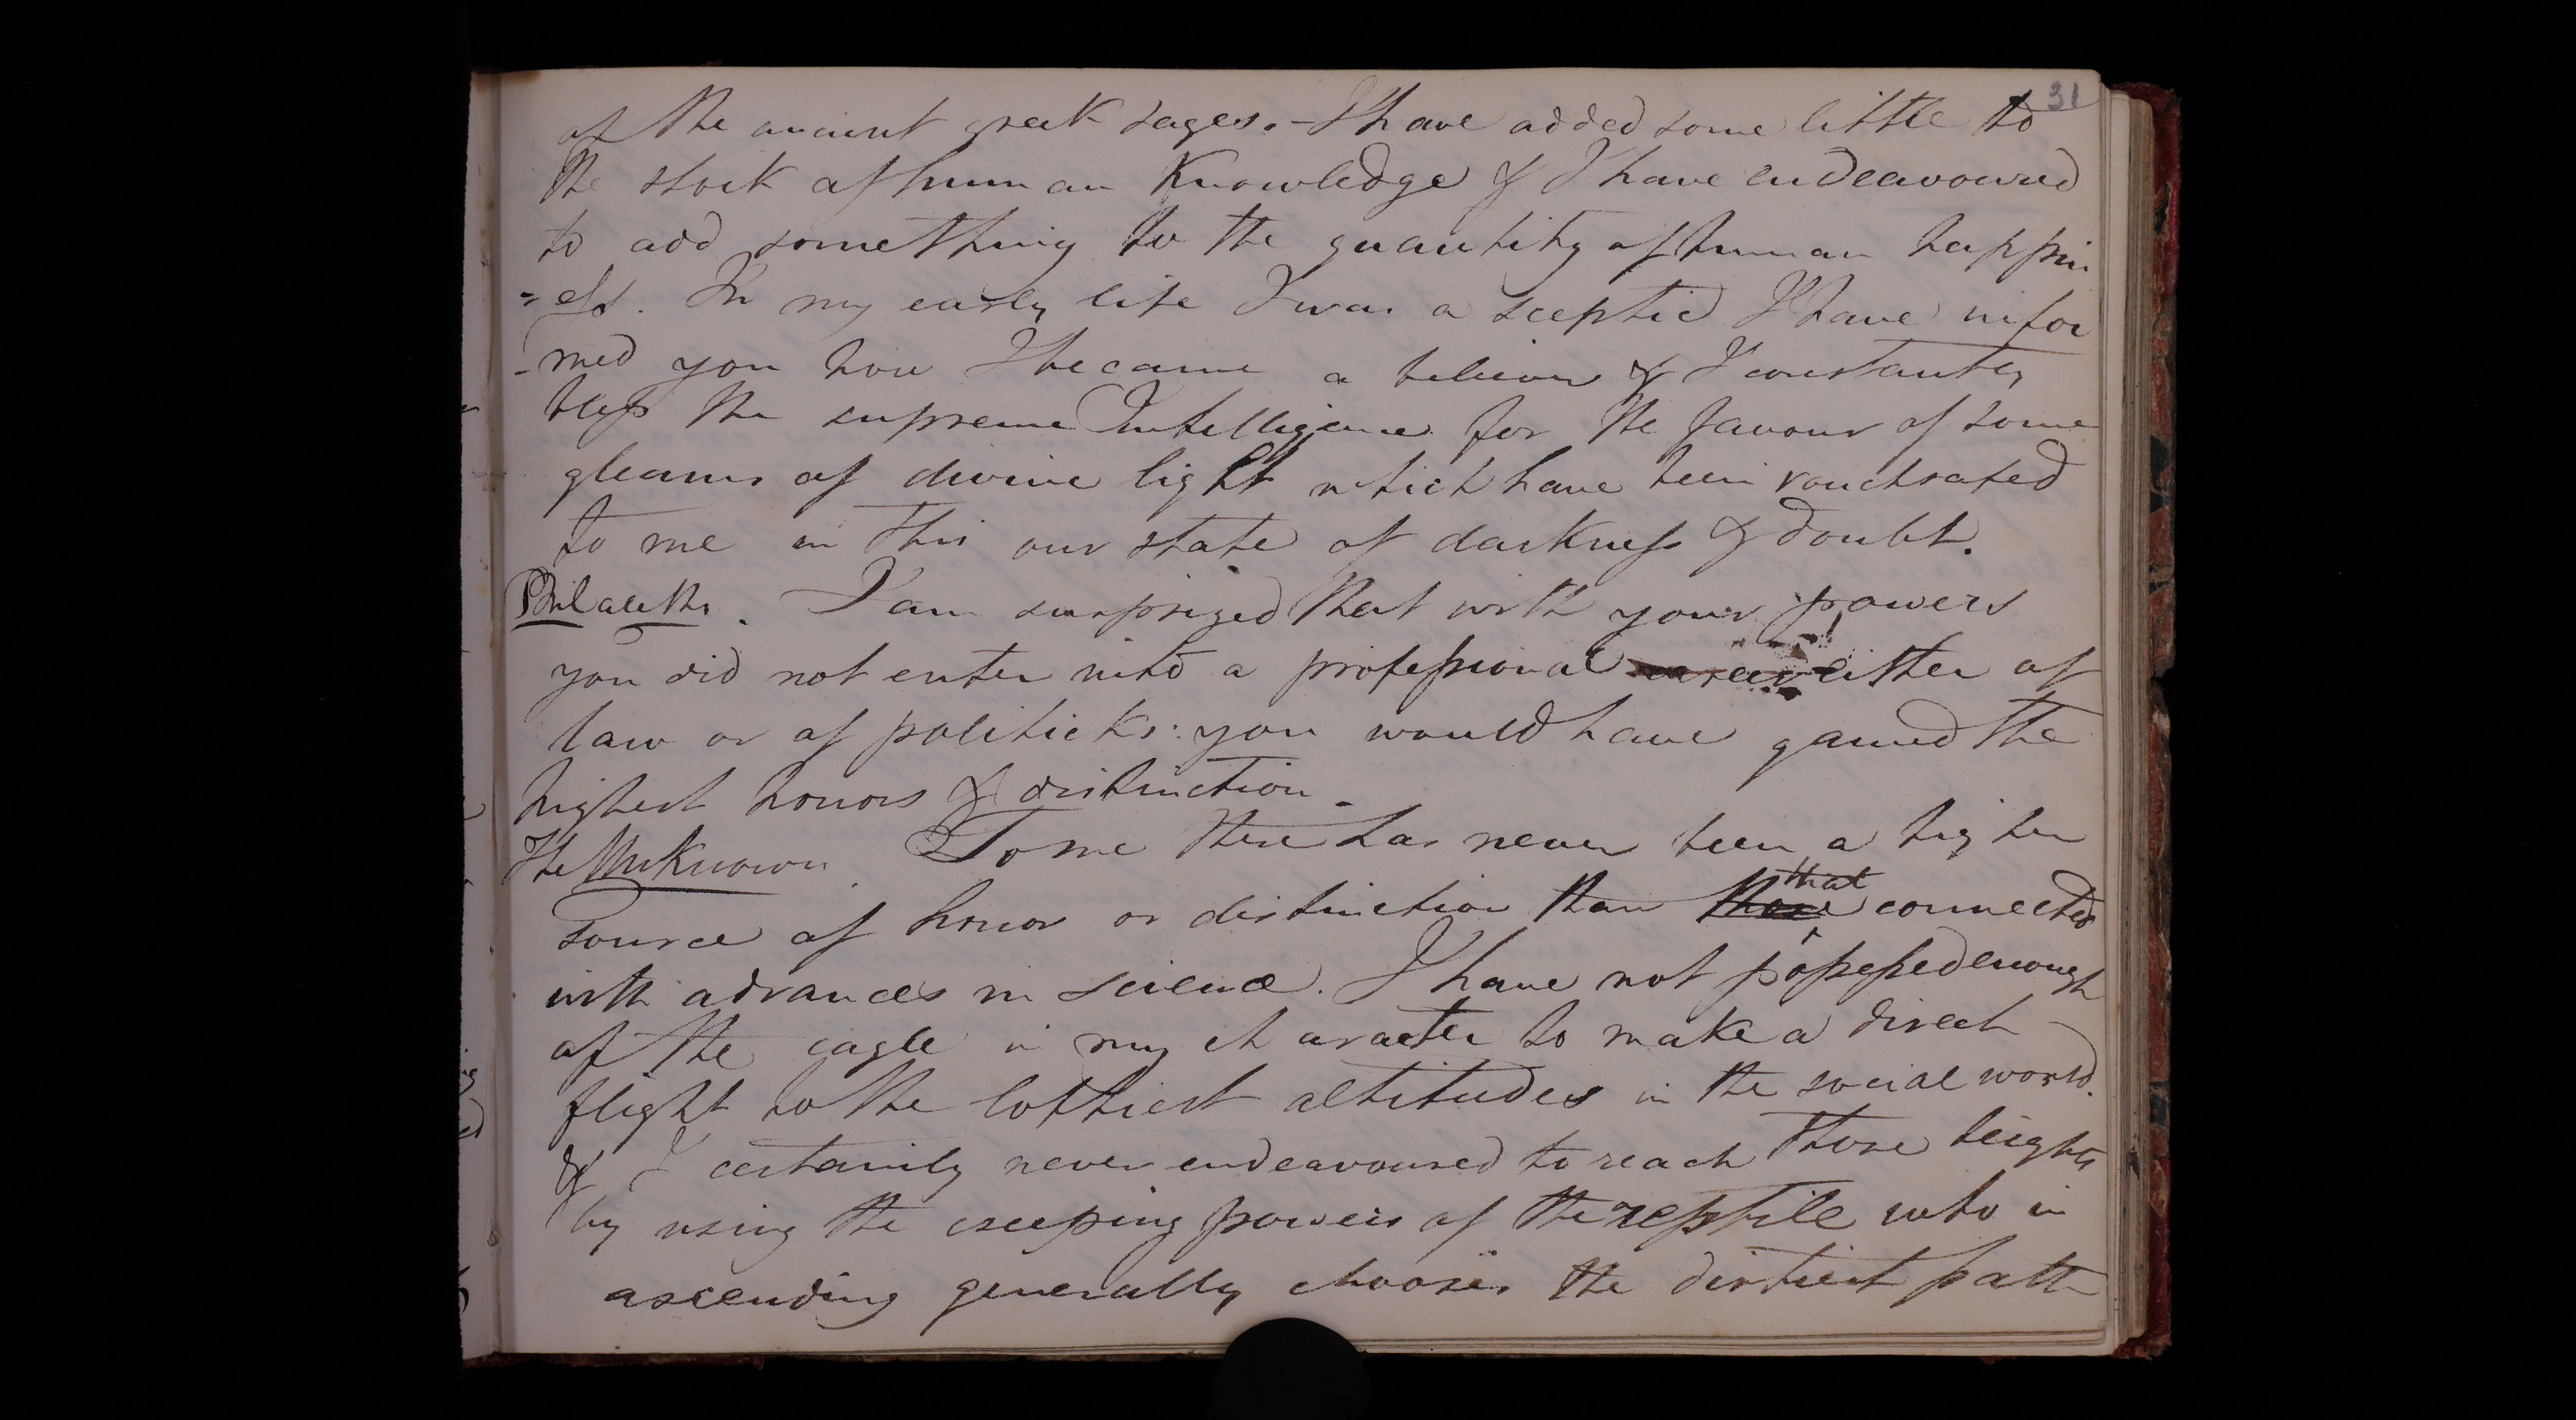 31
of the ancient greek sages. - I have added some little to
the stock of human knowledge & I have endeavoured
to add something to the quantity of human happin
=ess. In my early life I was a sceptic I have infor
-med you how I became a believer & I constantly
bless the supreme Intelligence for the favour of some
gleams of divine light which have been vouchsafed
to me in this our state of darkness & doubt.
Philaleths. I am surprized that with your powers
you did not enter into a professional career either of
law or of politicks: you would have gained the
highest honors & distinction.
The Unknown. To me there has never been a higher
that
source of honor or distinction than those connected
with advances in science. I have not possessed enough
of the eagle in my character to make a direct
flight to the loftiest altitudes in the social world.
& I certainly never endeavoured to reach those heights
by using the creeping powers of the reptile who in
ascending generally chooses the dirtiest path